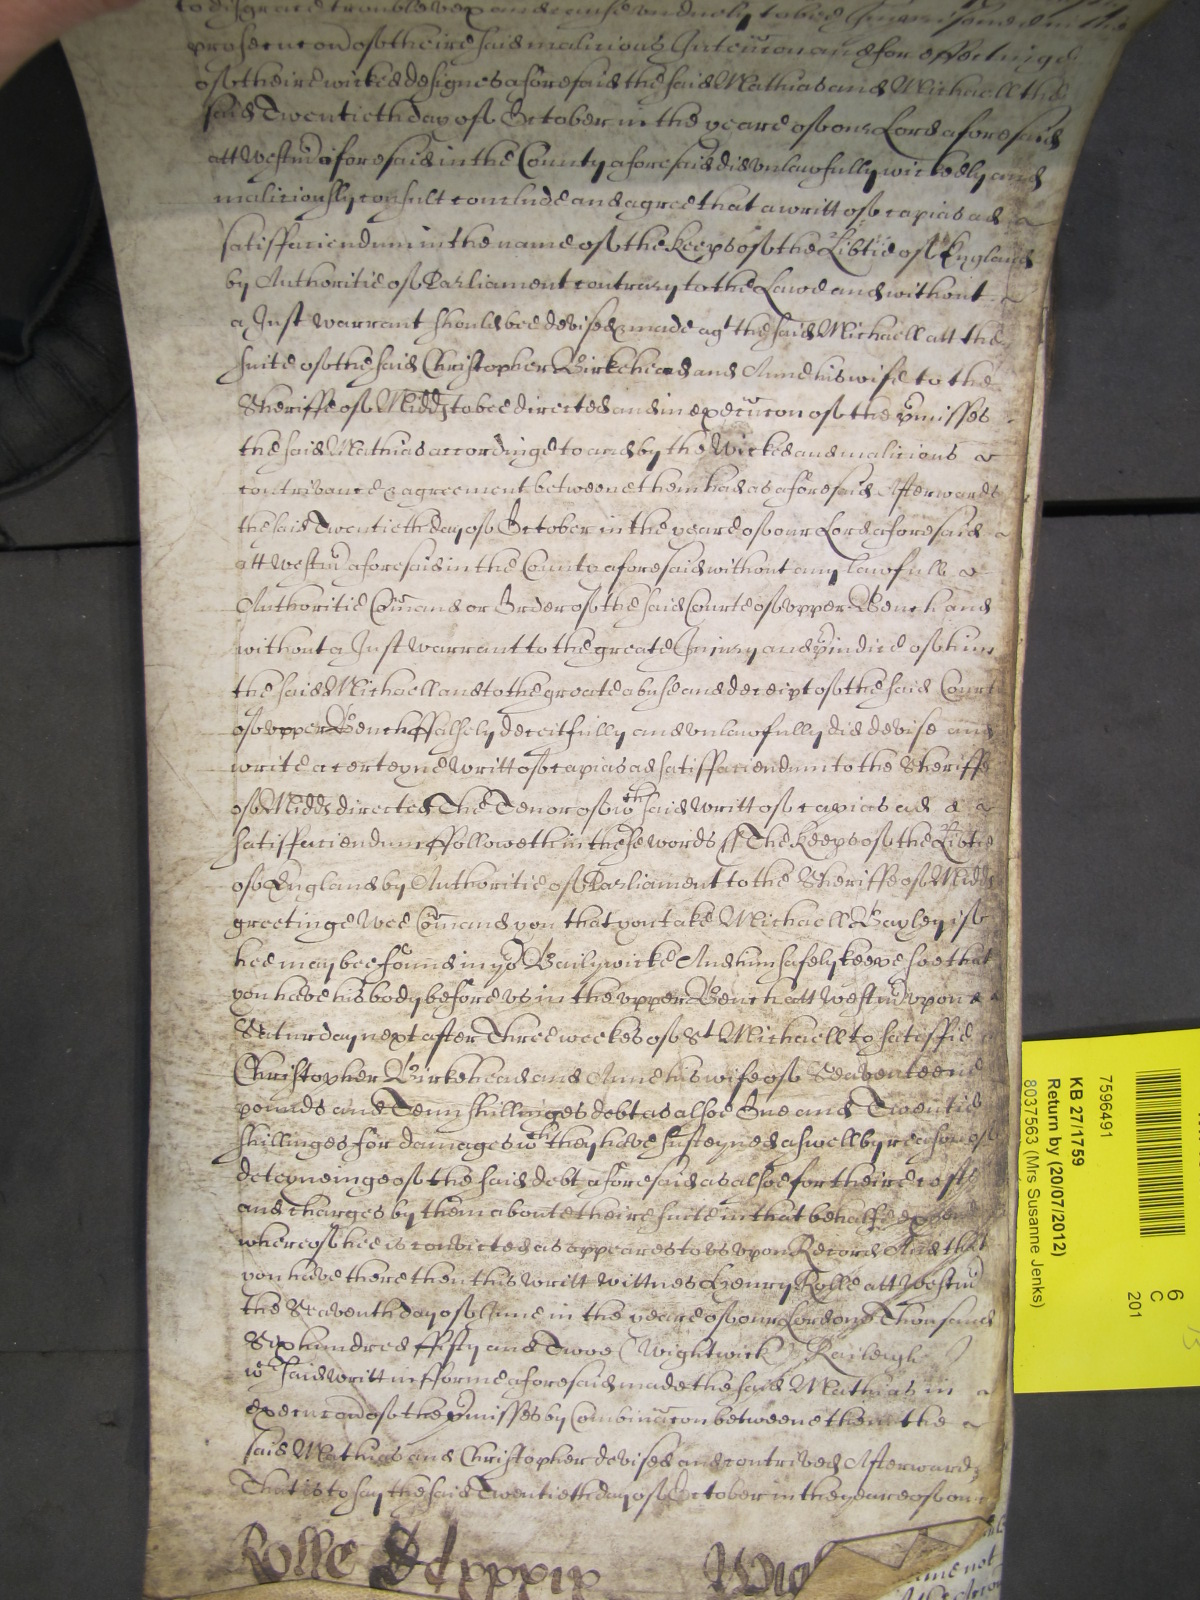 to disgrace trouble vex and cause unduely to bee Imprisoned in the
prosecucon of theire said malicious Intencon and for effectinge
of theire wicked designes aforesaid the said Mathias and Michaell the
said Twentieth day of October in the yeare of our Lord aforesaid
att Westm aforesaid in the County aforesaid did vnlawfully wickedly and
maliciously consult conclude and agree that a writt of capias ad
satisfaciendum in the name of the Keeps of the Libtie of England
by Authoritie of Parliament contrary to the Lawe and without
a Just warrant should bee devised & made agt the said Michaell att the
suite of the said Christopher Birkehead and Anne his wife to the
Sheriffe of Midds to bee directed and in execucon of the pmisses
the said Mathias accordinge to and by the Wicked and malicious
contrivance & agreement betweene them had as aforesaid Afterwards
the said Twentieth day of October in the yeare of our Lord aforesaid
att Westm aforesaid in the County aforesaid without any lawfull
Authoritie Comand or Order of the said Courte of vpper Bench and
without a Just warrant to the greate Iniury and piudice of him
the said Michaell and to the greate abuse and deceipt of the said Court
of vpper Bench ffalsely deceitfully and vnlawfully did devise and
write a certeyne Writt of capias ad satisfaciendum to the Sheriffe
of Midds directed The Tenor of wch said writt of capias ad
satisfaciendum ffolloweth in these words ss The Keeps of the Libtie
of England by Authoritie of Parliament to the Sheriffe of Midds
greetinge Wee Comand you that you take Michaell Bayley if
hee may bee found in yor Bailywicke And him safely keepe soe that
you have his body before vs in the vpper Bench att Westm vpon
Saturday next after Three weekes of St Michaell to satisfie
Christopher Birkehead and Anne his wife of Seaventeene
pounds and Tenn shillinges debt as alsoe One and Twentie
shillinges for damages wch they have susteyned aswell by reason of
deteyneinge of the said debt aforesaid as alsoe for theire costs
and charges by them aboute theire suite in that behalfe expended
whereof hee is convicted as appeares to vs vpon Record And that
you have there then this writt wittnes Henry Rolle att Westm
the Seaventh day of June in the yeare of our Lord one Thousand
Six hundred ffifty and Twoe (Wightwick) Raileigh
wch said writt in fforme aforesaid made the said Mathias in
execucon of the pmisses by Combinacon betweene them the
said Mathias and Christopher devised and contrived Afterwards
That is to say the said Twentieth day of October in the yeare of our
Rolle
7596491
KB 27/1759
Return by (20/07/2012)
8037563 (Mrs Susanne Jenks)
6
C
201